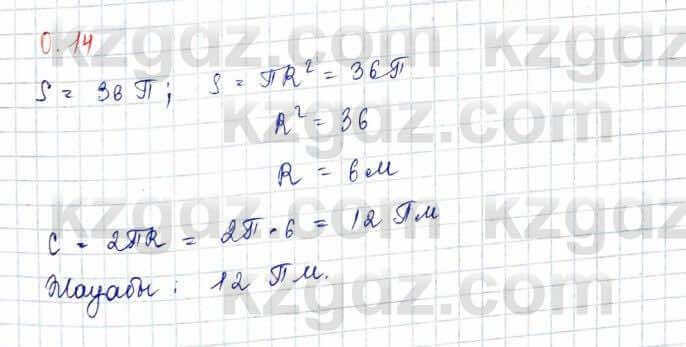 0.14
S = 36 П; S = ПR² = 36П
R² = 36
R = 6 м
C = 2ПR = 2П • 6 = 12 Пм
Жауабы: 12 Пм.
kzgdz.com kzgdz.com
kzgdz.com
kzgdz.com
kzgdz.com